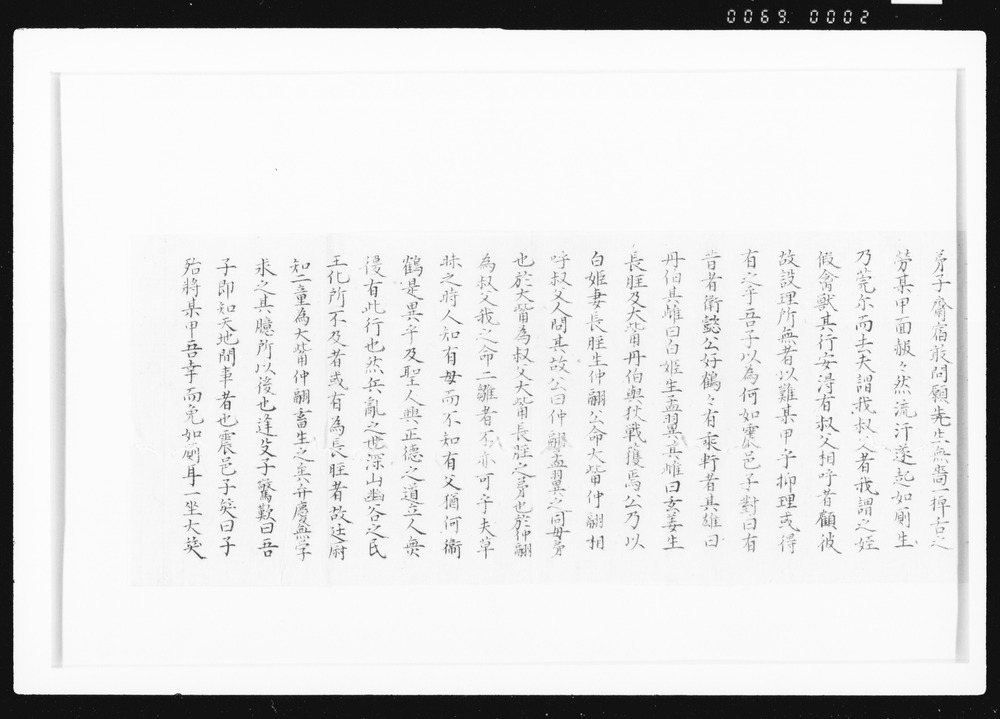 0069. 0002
弟子齋宿敢問願先生無嗇一稗古之
勞某甲面赧々然流汗遂起如廁生
乃莞尓而去夫謂我叔父者我謂之姪
假禽獸其行安得有叔父相呼者顧彼
故設理所無者以難某甲乎抑理或得
有之乎吾子以為何如震邑子對曰有
昔者衛懿公好鶴々有乘軒者其雄曰
丹伯其雌曰白姬生孟翼其雌曰玄姜生
長脛及大觜丹伯與狄戰獲焉公乃以
白姬妻長脛生仲翮公命大觜仲翮相
呼叔父人問其故公曰仲翮孟翼之同母弟
也於大觜為叔父大觜長脛之弟也於仲翮
為叔父我之命二雛者不亦可乎夫草
昧之時人知有母而不知有父猶何衞
鶴是異乎及聖人興正德之道立人無
復有此行也然兵亂之世深山幽谷之民
王化所不及者或有為長脛者故辻廚
知二童為大觜仲翮畜生之矣弁慶無字
求之其臆所以後也逢父子驚歎曰吾
子即知天地間事者也震邑子笑曰子
殆將某甲吾幸而免如廁耳一坐大笑